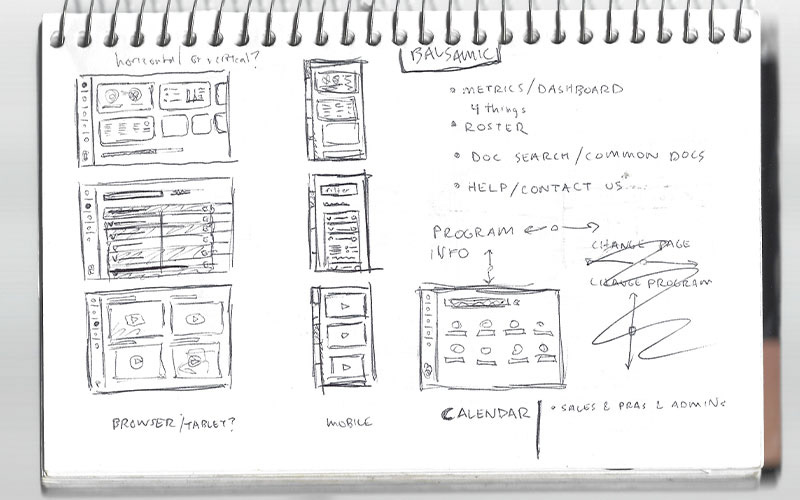 horizontal or vertical?
BALSAMIC
• METRICS/DASHBOARD
4 things
• ROSTER
• DOC SEARCH/COMMON DOCS
• HELP/CONTACT US
filter
PROGRAM
INFO
CHANGE PAGE
CHANGE PROGRAM
BROWSER/TABLET?
MOBILE
CALENDAR
• SALES & PRAS & ADMINS